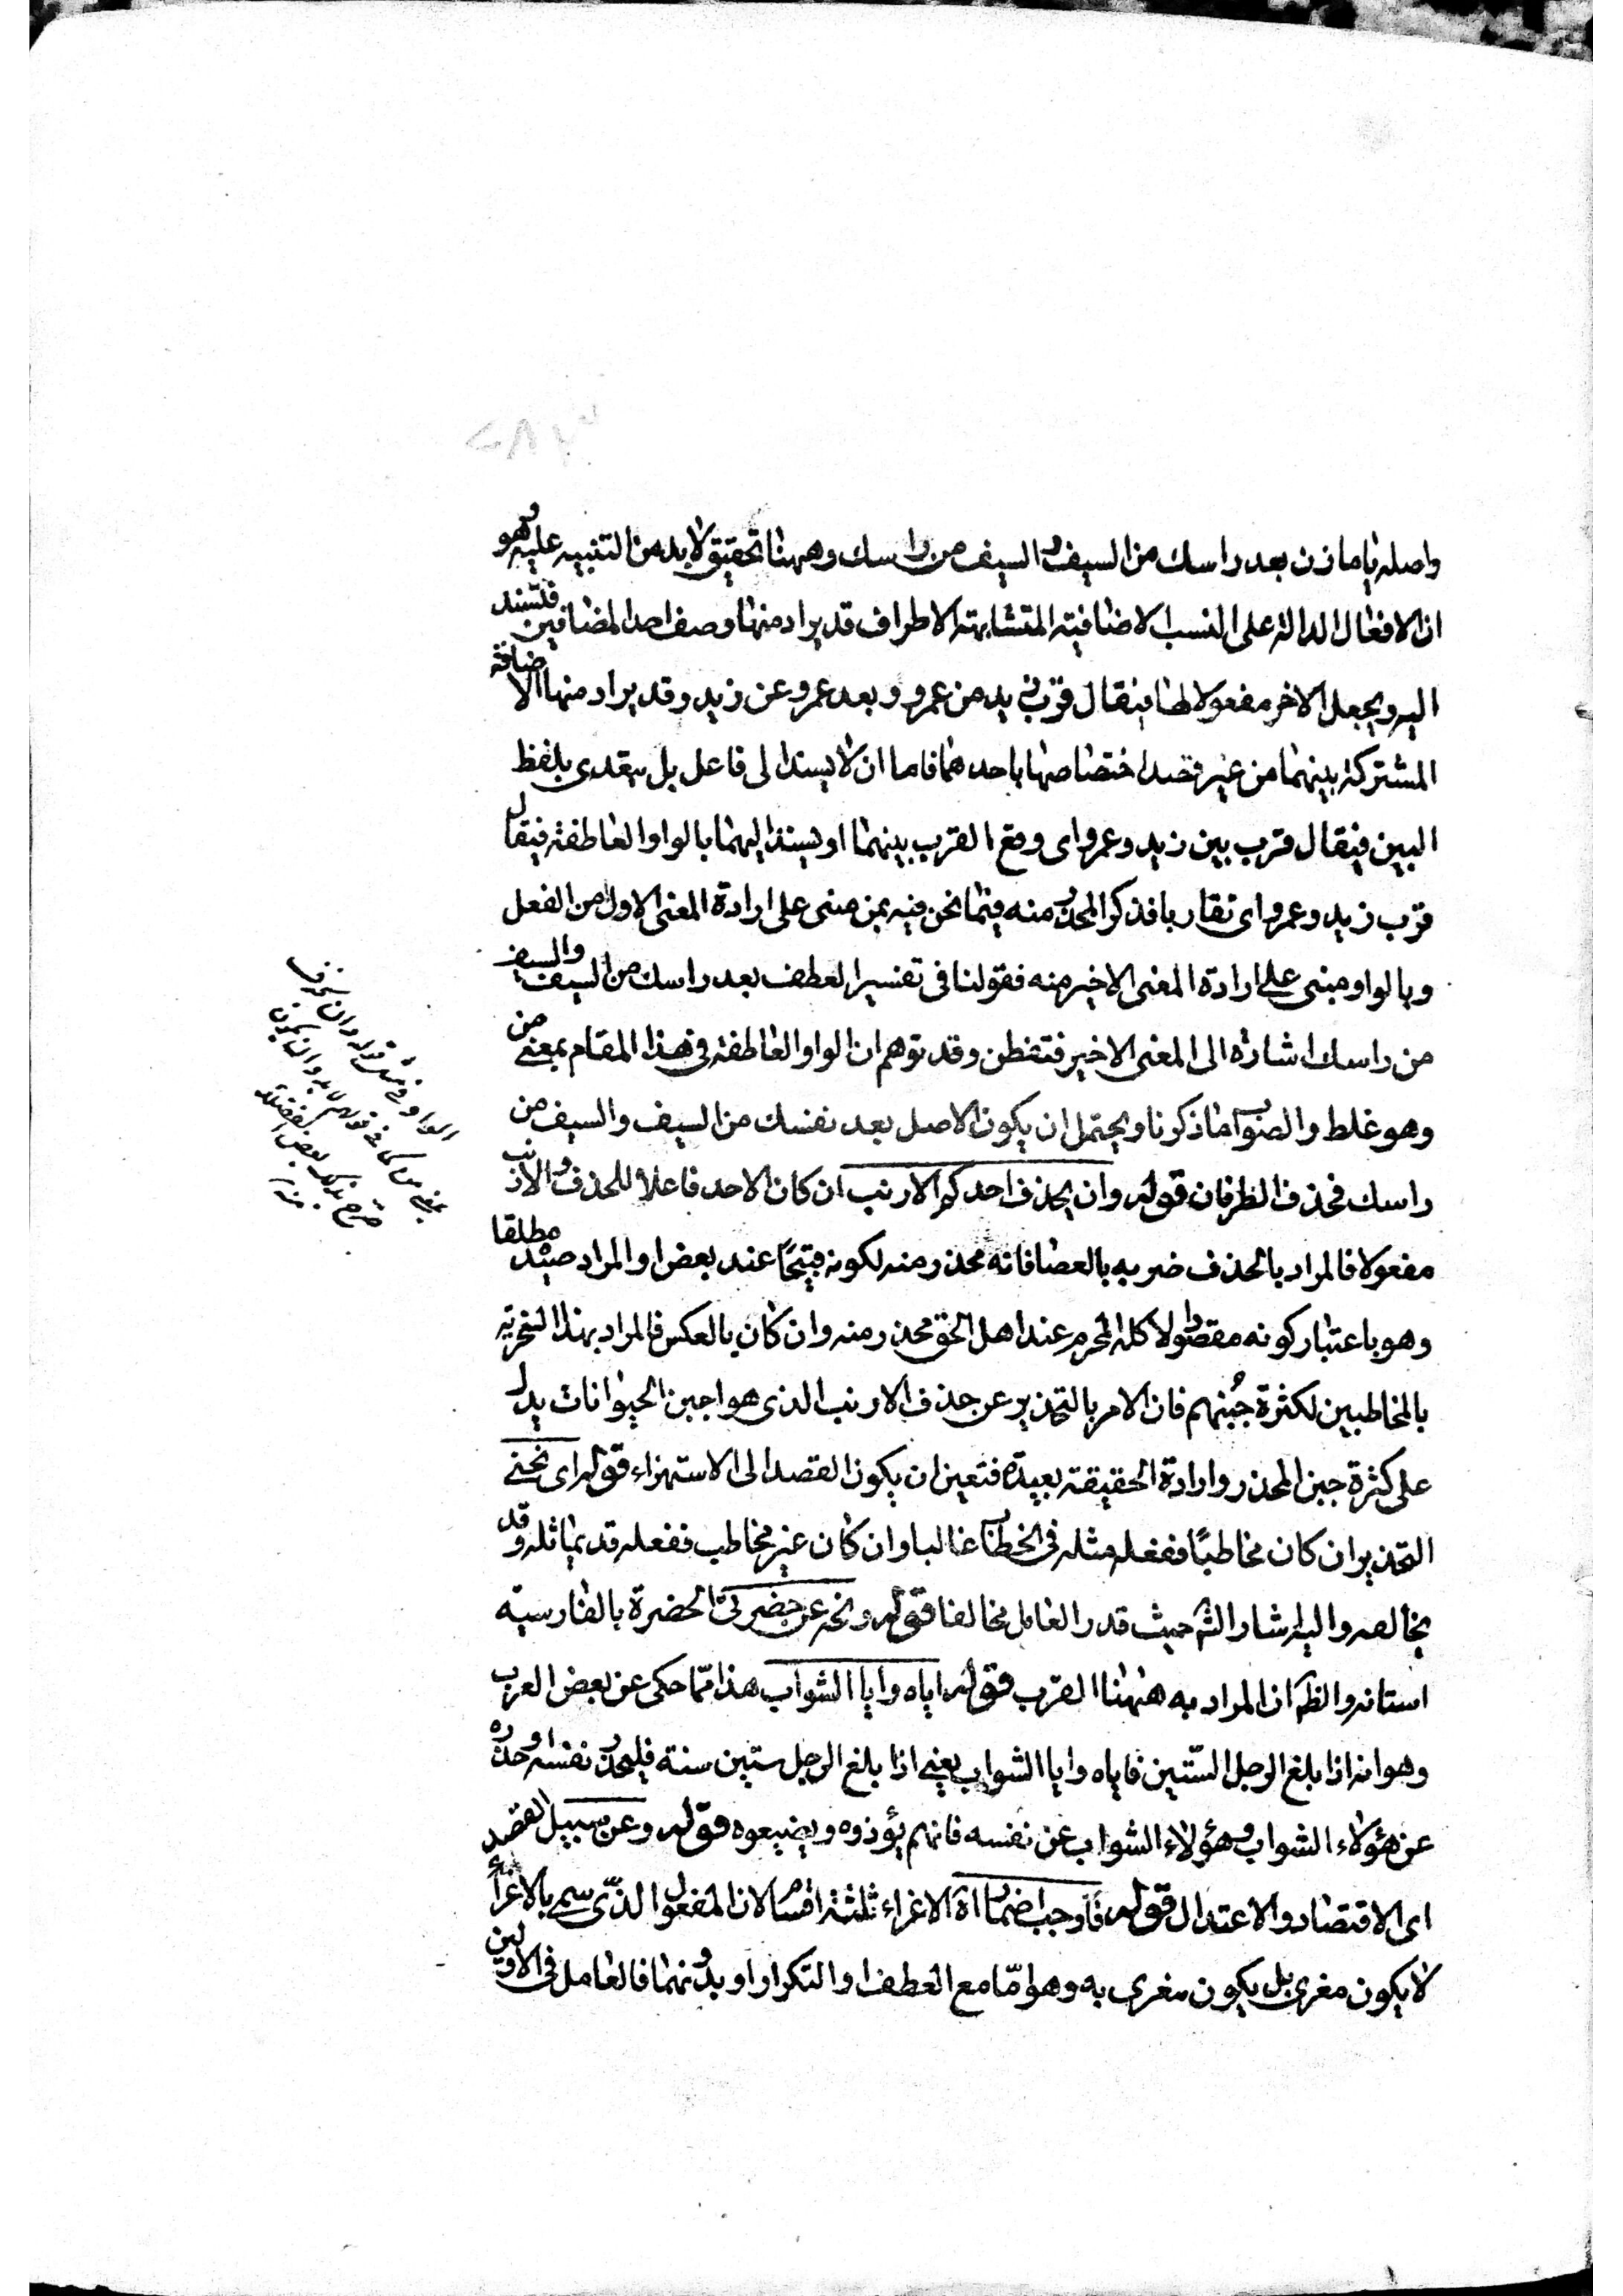 واصله يا مازن بعد راسك من السيف والسيف من راسك وههنا تحقيق لابد من التنبيه عليه وهو
ان الافعال الدالة على النسب الاضافية المتشابهة الاطراف قد يراد منها وصف احد المضافين فتسند
اليه ويجعل الاخر مفعولا لها فيقال قرب زيد من عمرو وبعد عمرو عن زيد وقد يراد منها الاضافة
المشتركة بينهما من غير قصد اختصاصها باحدهما فاما ان لا يسند الى فاعل بل يتعدى بلفظ
البين فيقال قرب بين زيد وعمرو اى وقع القرب بينهما او يسند اليهما بالواو العاطفة فيقال
قرب زيد وعمرو اى تقاربا فذكر المحذر منه فيما نحن فيه بمن مبنى على ارادة المعنى الاول من الفعل
وبالواو مبنى على ارادة المعنى الاخير منه فقولنا فى تفسير العطف بعد راسك من السيف والسيف
من راسك اشارة الى المعنى الاخير فتفطن وقد توهم ان الواو العاطفة فى هذا المقام بمعنى من
وهو غلط والصواب ما ذكرنا ويحتمل ان يكون الاصل بعد نفسك من السيف والسيف من
راسك فحذف الظرفان قوله وان يحذف احدكم الارنب ان كان الاحد فاعلا للحذف والارنب
مفعولا فالمراد بالحذف ضربه بالعصا فانه محذر منه لكونه قبيحًا عند بعض او المراد صيد مطلقا
وهو باعتبار كونه مقصودا لاكله المحرم عند اهل الحق محذر منه وان كان بالعكس فالمراد بهذا السخرية
بالمخاطبين لكثرة جُبنهم فان الامر بالتحذير عن حذف الارنب الذى هو اجبن الحيوانات يدل
على كثرة جبن المحذر وارادة الحقيقة بعيدة فتعين ان يكون القصد الى الاستهزاء قوله اى نحنى
التحذير ان كان مخاطبًا ففعله مثله فى الخطاب غالبا وان كان غير مخاطب ففعله قد يماثله وقد
يخالفه واليه اشار الش حيث قدر العامل مخالفا قوله ونحه عن حضرتى الحضرة بالفارسية
استانه والظ ان المراد به ههنا القرب قوله اياه وايا الشواب هذا مما حكى عن بعض العرب
وهو انه اذا بلغ الرجل الستين فاياه وايا الشواب يعنى اذا بلغ الرجل ستين سنة فليحذر نفسه وحذره
عن هؤلاء الشواب وهؤلاء الشواب عن نفسه فانهم يؤذوه ويضيعوه قوله وعن سبيل القصد
اى الاقتصاد والاعتدال قوله فاوجب اضمار اه الاغراء ثلثة اقسام لان المفعول الذى سمى بالاغراء
لا يكون مغرى بل يكون مغرى به وهو امّا مع العطف او التكرار او بدونهما فالعامل فى الاولين